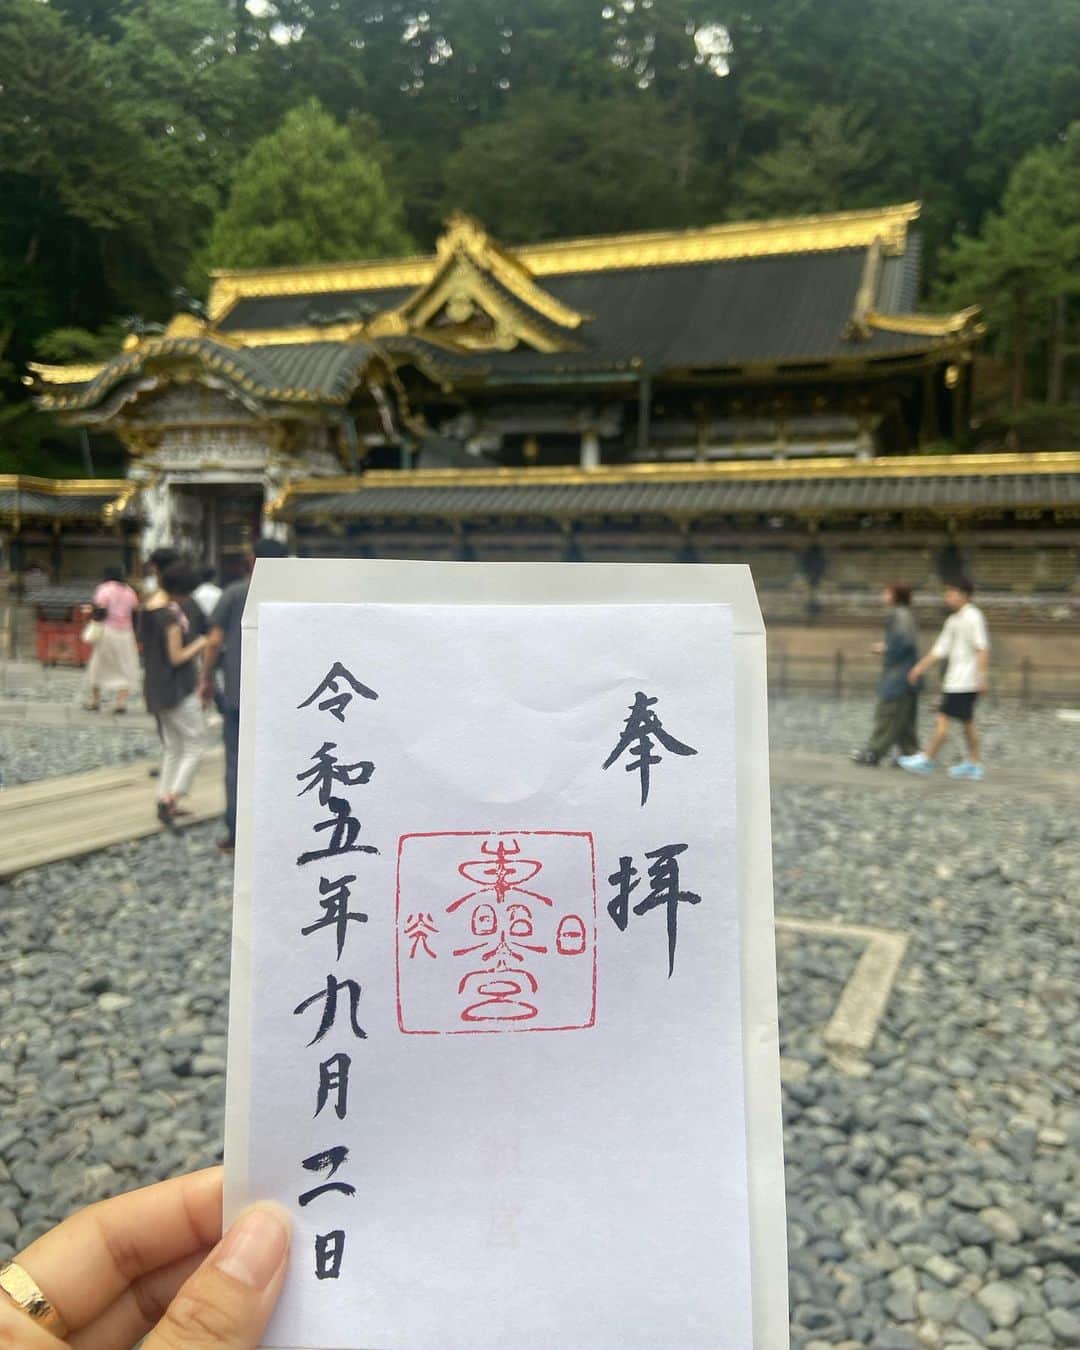 奉拝
日光
東照宮
令和五年九月二日